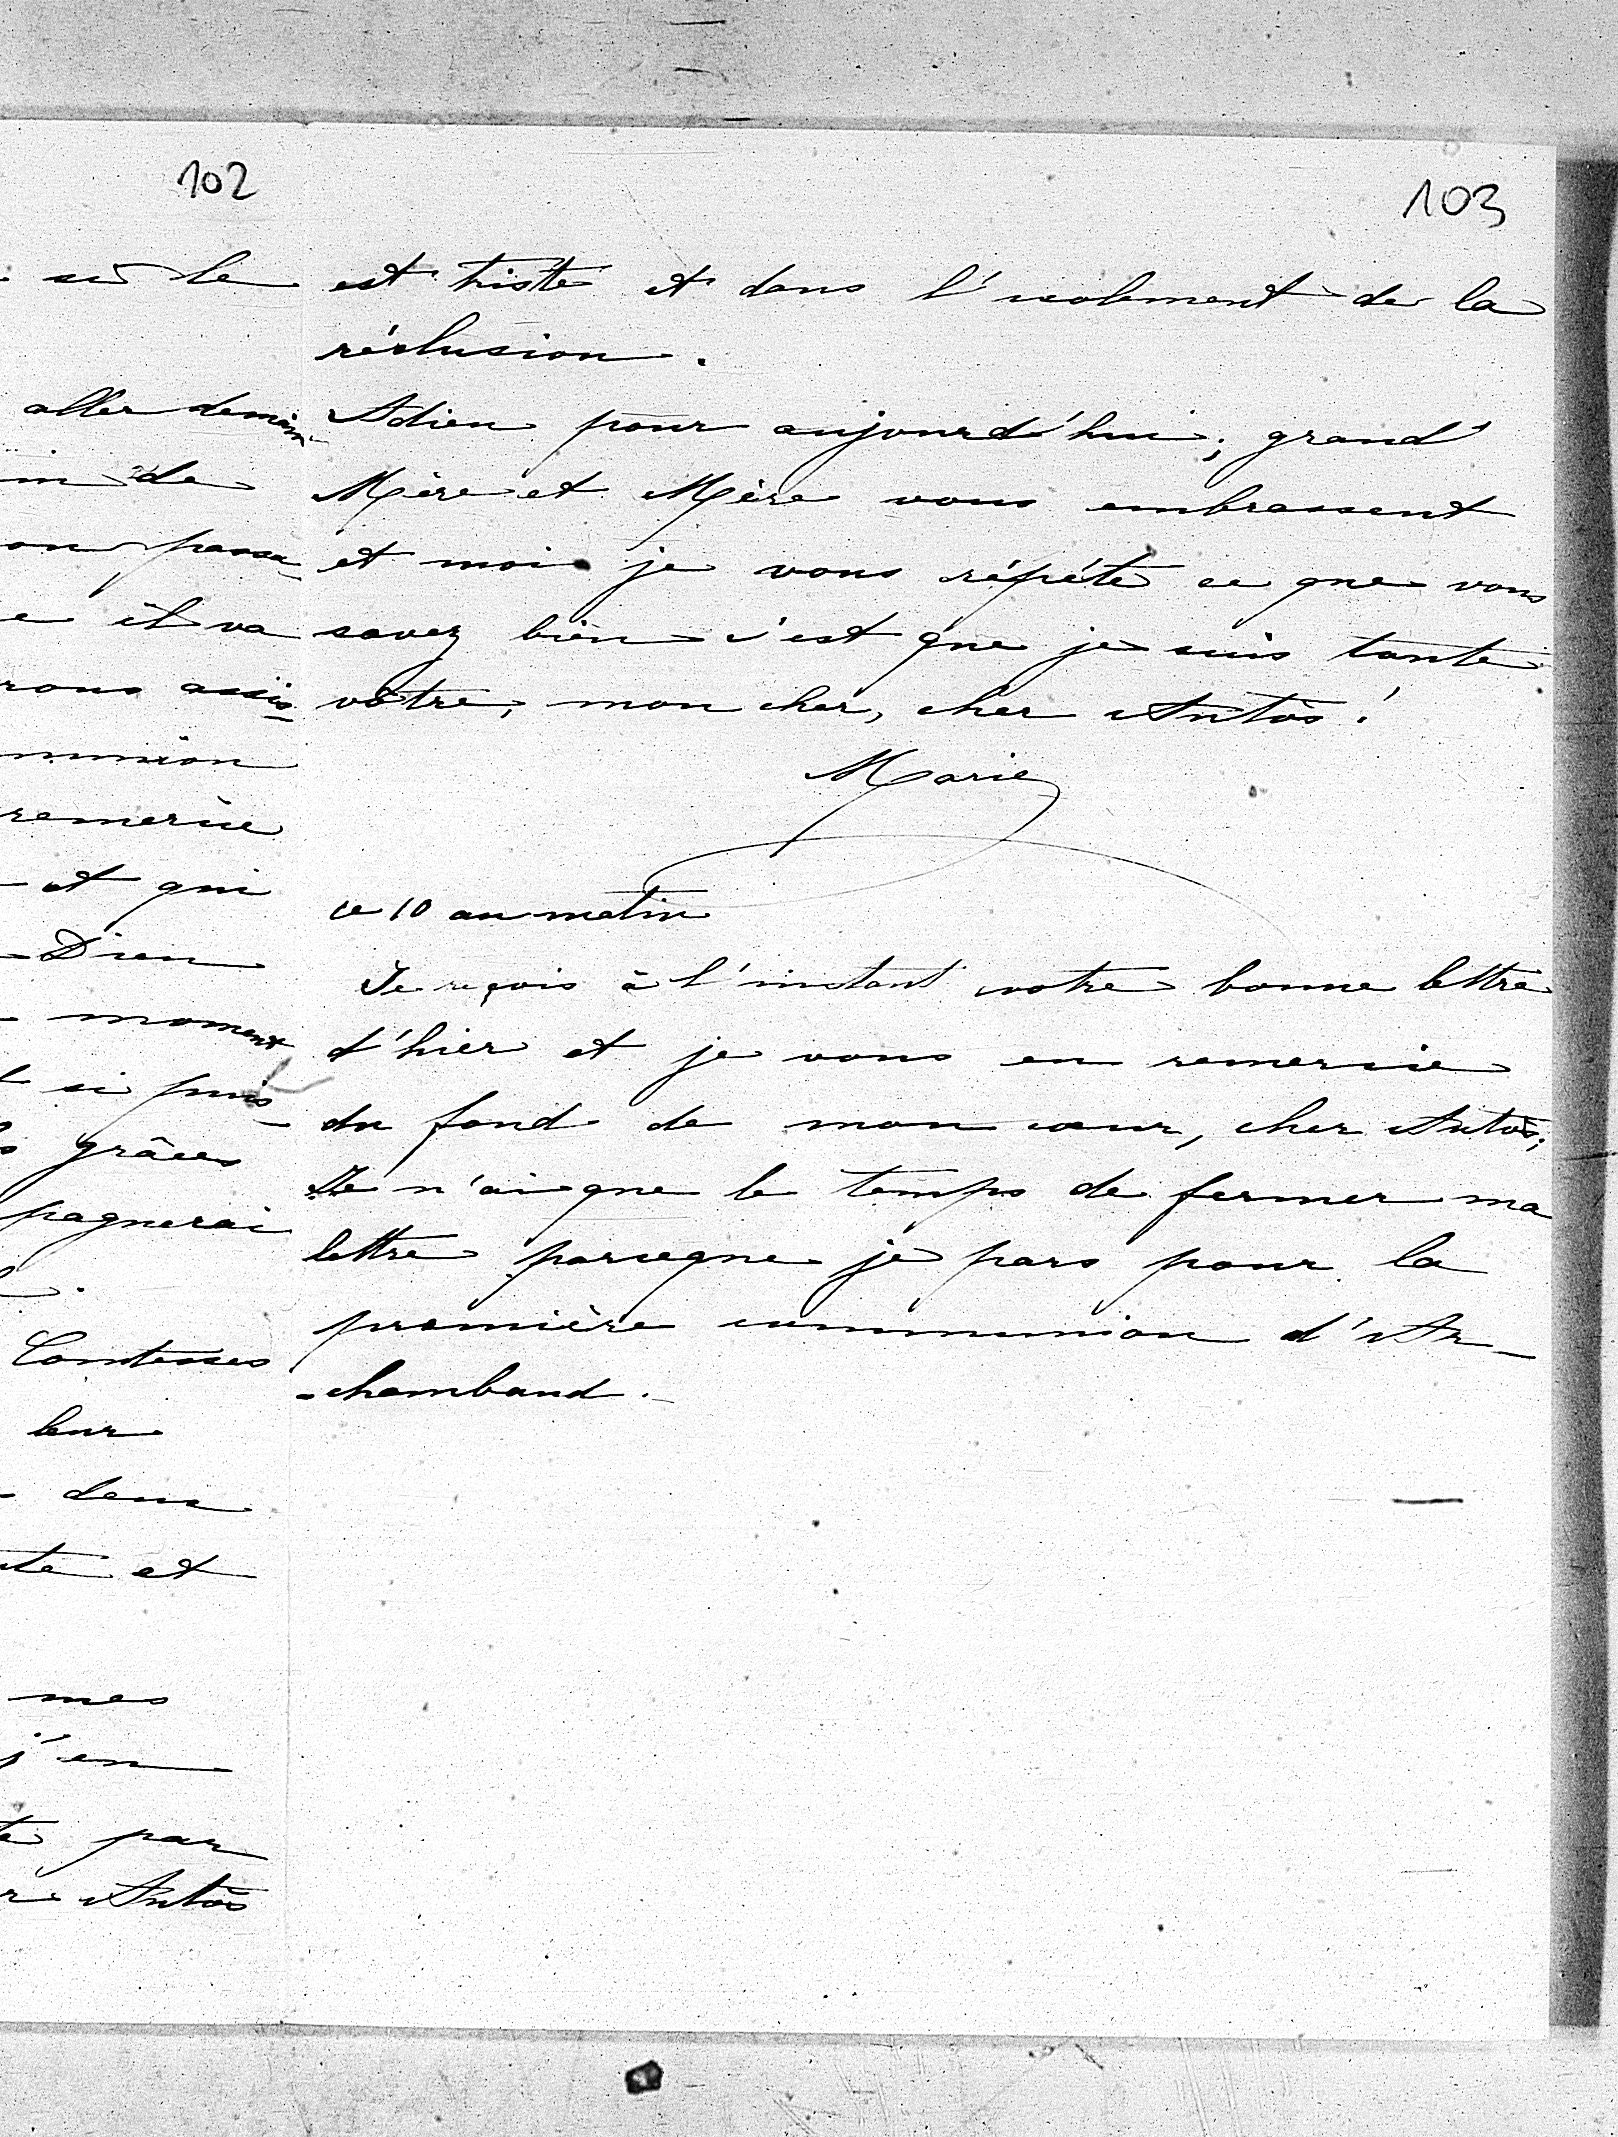 102
sû le
aller demain
de
passa-
il va
assis-
remercie
et qui
Dieu
moment
si puis-
grâces
pagnerai
Comtesses
leur
deux
et
mes
j'en
par
Antòs
103
est triste et dans l'isolement de la
réclusion.
Adieu pour aujourd'hui; grand'
Mère et Mère vous embrassent
et moi je vous répéte ce que vous
savez bien c'est que je suis toute
vôtre, mon cher, cher Antòs!
Marie
ce 10 au matin
Je reçois à l'instant votre bonne lettre
d'hier et je vous en remercie
du fond de mon cœur, cher Antòs;
Je n'ai que le temps de fermer ma
lettre parceque je pars pour la
première communion d'Ar-
-chambaud.